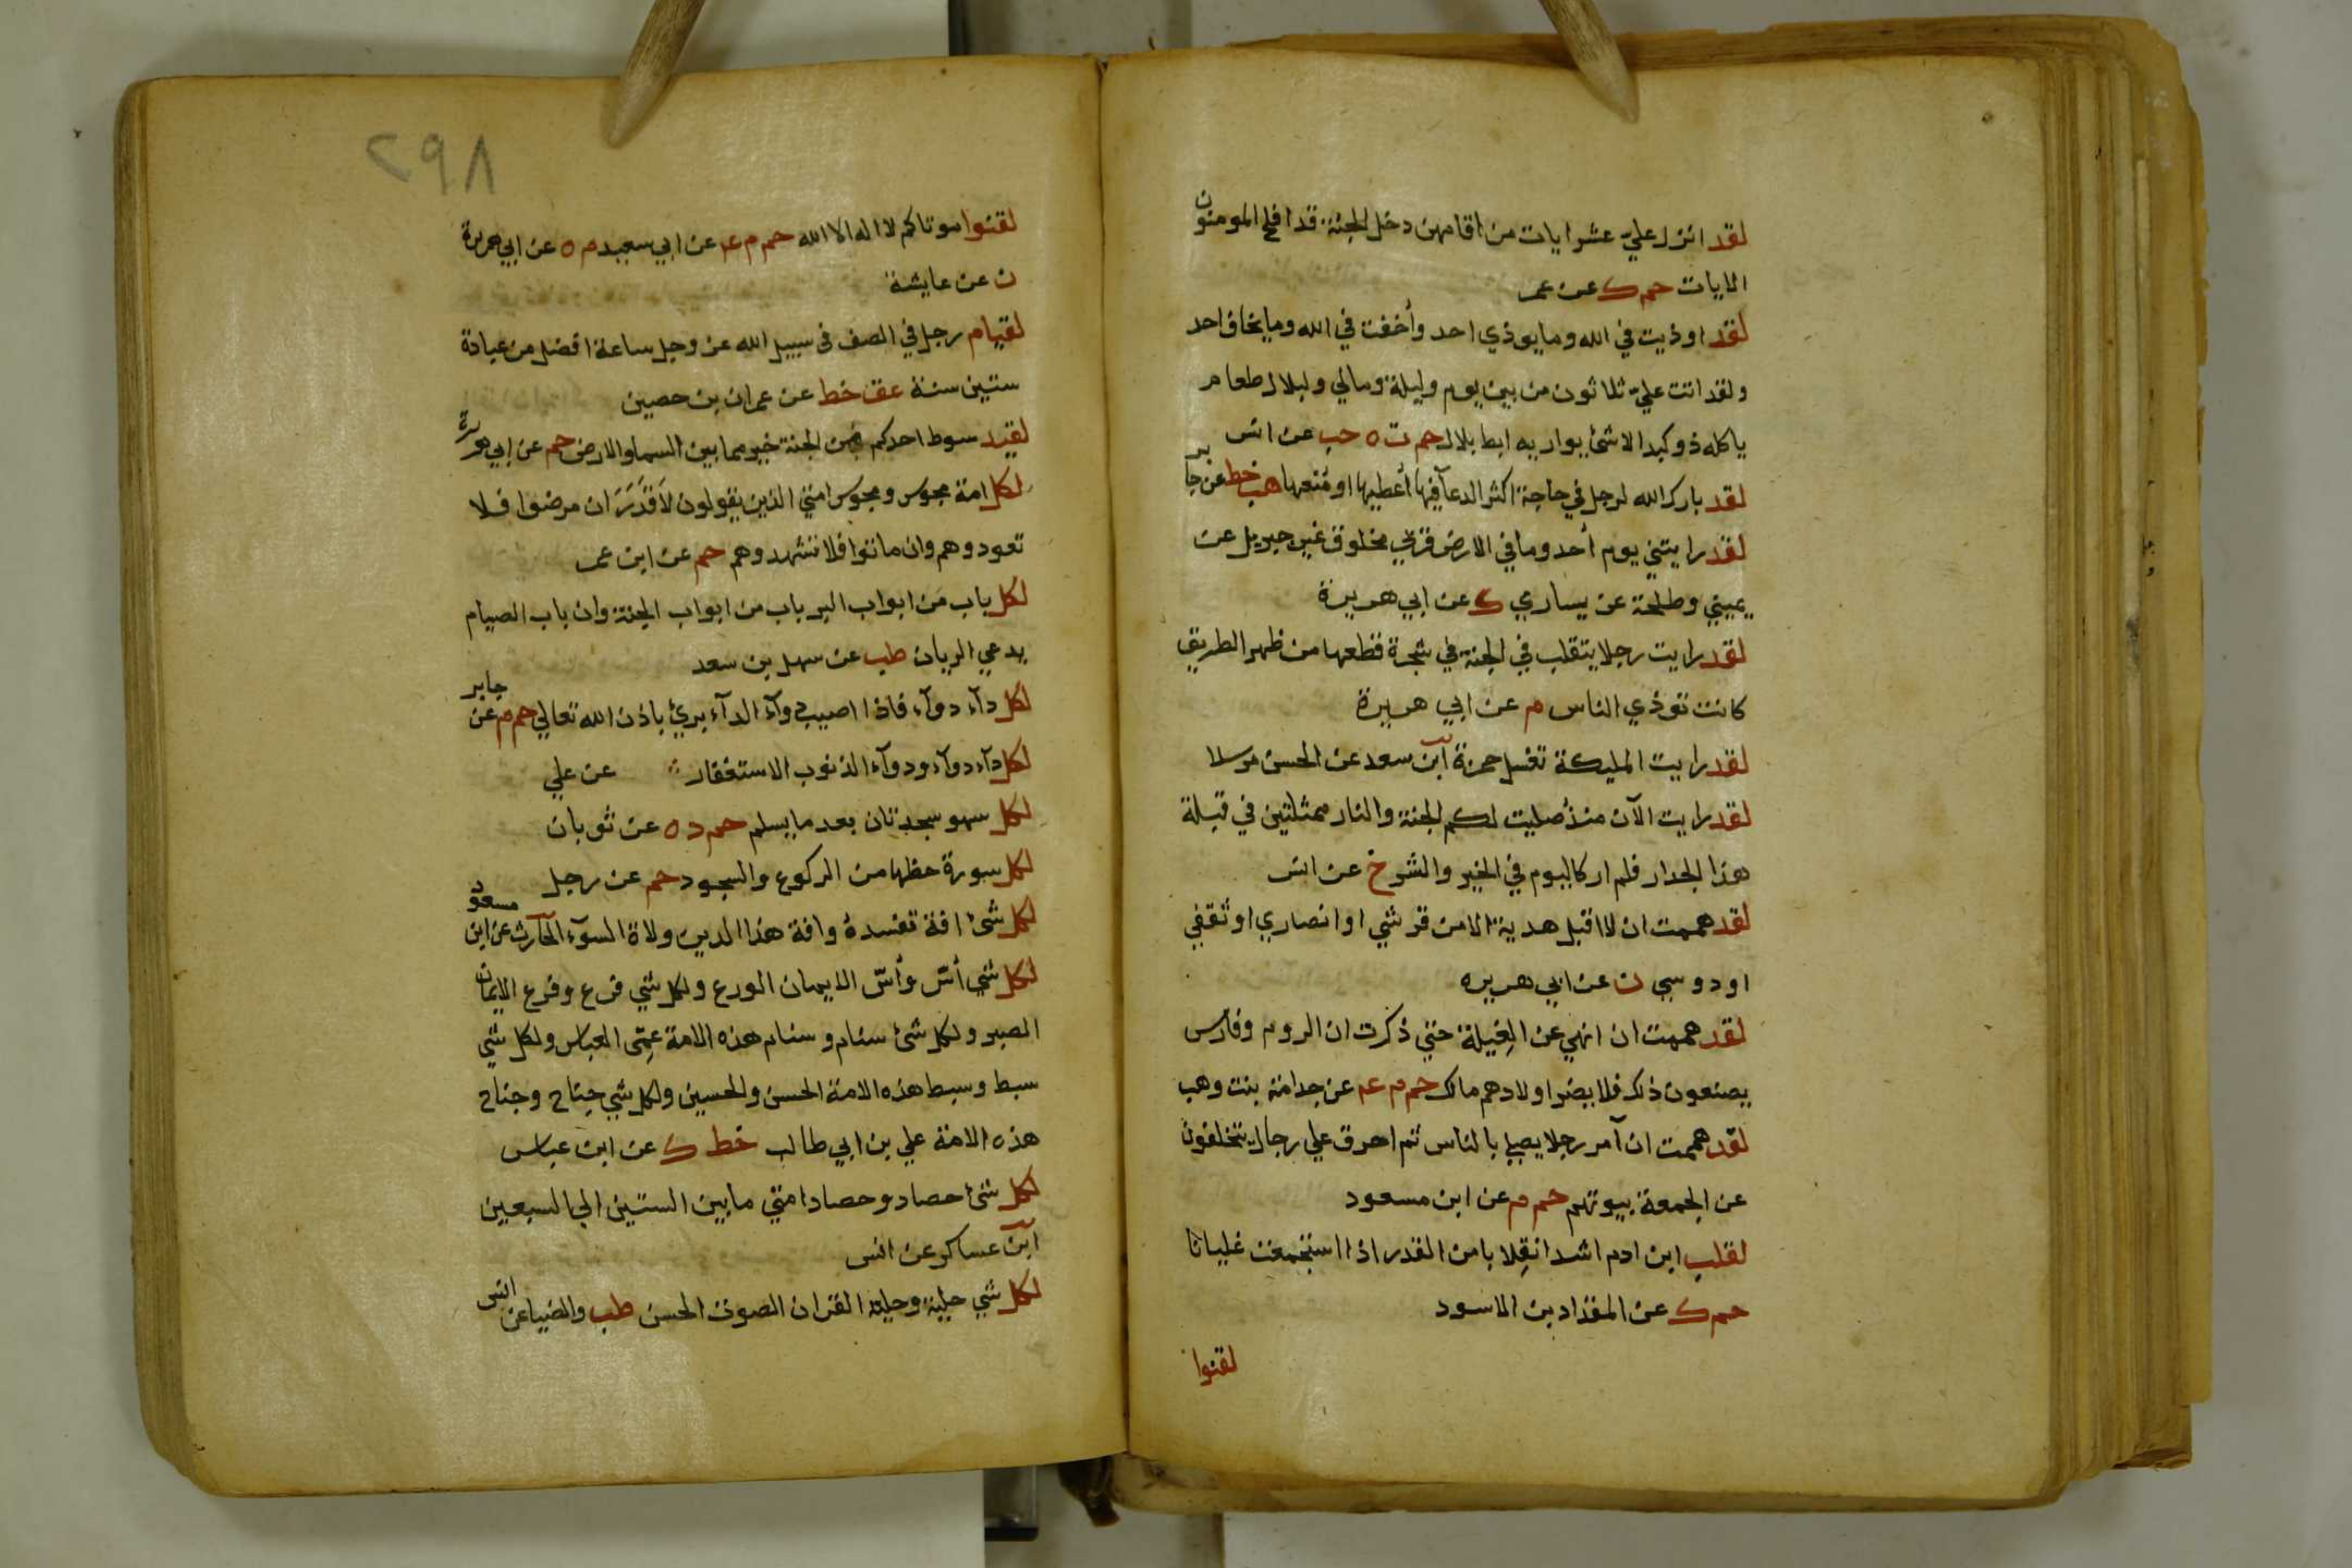 لقد انزل علي عشر ايات من اقامهن دخل الجنة قد افلح المومنون
الايات حم ك عن عمر
لقد اوذيت في الله وما يوذي احد وأخفت في الله وما يخاف احد
ولقد اتت علي ثلاثون من بين يوم وليلة ومالي ولبلال طعام
ياكله ذو كبد الا شئ يواريه ابط بلال حم ت ه حب عن انس
لقد بارك الله لرجل في حاجة اكثر الدعآ فيها أعطيها او مُنعها هب خط عن جابر
لقد رايتني يوم أحد وما في الارض قربي مخلوق غير جبريل عن
يميني وطلحة عن يساري ك عن ابي هريرة
لقد رايت رجلا يتقلب في الجنة في شجرة قطعها من ظهر الطريق
كانت توذي الناس م عن ابي هريرة
لقد رايت المليكة تغسل حمزة ابن سعد عن الحسن مرسلا
لقد رايت الآن منذ صليت لكم الجنة والنار ممثلتين في قبلة
هذا الجدار فلم ار كاليوم في الخير والشر خ عن انس
لقد هممت ان لا اقبل هدية الا من قرشي او انصاري او ثقفي
او دوسي ن عن ابي هريره
لقد هممت ان انهي عن الغيلة حتي ذكرت ان الروم وفارس
يصنعون ذلك فلا يضر اولادهم مالك حم م عم عن جدامة بنت وهب
لقد هممت ان آمر رجلا يصلي بالناس ثم احرق علي رجال يتخلفون
عن الجمعة بيوتهم حم م عن ابن مسعود
لقلب ابن ادم اشد انقلابا من القدر اذا استجمعت غليانا
حم ك عن المقداد بن الاسود
لقنوا
٢٩٨
لقنوا موتاكم لا اله الا الله حم م عم عن ابي سعيد م ه عن ابي هريرة
ن عن عايشة
لقيام رجل في الصف في سبيل الله عز وجل ساعة افضل من عبادة
ستين سنة عق خط عن عمران بن حصين
لقيد سوط احدكم من الجنة خير مما بين السما والارض حم عن ابي هريرة
لكل امة مجوس ومجوس امتي الذين يقولون لا قدر ان مرضوا فلا
تعودوهم وان ماتوا فلا تشهدوهم حم عن ابن عمر
لكل باب من ابواب البر باب من ابواب الجنة وان باب الصيام
يدعي الريان طب عن سهل بن سعد
لكل دآء دوآء فاذا اصيب دوآء الدآء برئ باذن الله تعالي حم م عن جابر
لكل دآء دوآء ودوآء الذنوب الاستغفار عن علي
لكل سهو سجدتان بعد ما يسلم حم د ه عن ثوبان
لكل سورة حظها من الركوع والسجود حم عن رجل
لكل شئ افة تفسده وافة هذا الدين ولاة السوٓء الحارث عن ابن مسعود
لكل شي أسّ وأسّ الايمان الورع ولكل شي فرع وفرع الايمان
الصبر ولكل شئ سنام وسنام هذه الامة عمّى العباس ولكل شي
سبط وسبط هذه الامة الحسن والحسين ولكل شي جناح وجناح
هذه الامة علي بن ابي طالب خط ك عن ابن عباس
لكل شئ حصاد وحصاد امتي ما بين الستين الي السبعين
ابن عساكر عن انس
لكل شي حلية وحلية القران الصوت الحسن طب والضيا عن انس